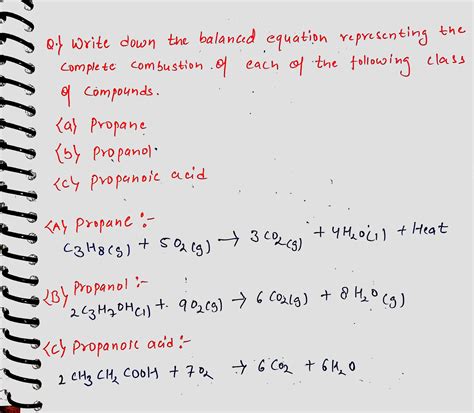 Q.} Write down the balanced equation representing the
complete combustion of each of the following class
of compounds.
{a} Propane
{b} Propanol.
{c} Propanoic acid
{A} Propane :-
C3H8(g) + 5O2(g) → 3CO2(g) + 4H2O(l) + Heat
{B} Propanol :-
2C3H7OH(l) + 9O2(g) → 6CO2(g) + 8H2O(g)
{C} Propanoic acid :-
2CH3CH2COOH + 7O2 → 6CO2 + 6H2O